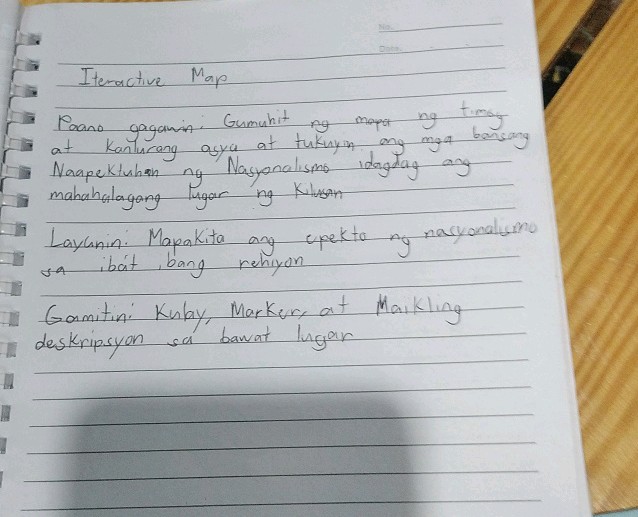 No.
Date.
Iteractive Map
Paano gagawin: Gumuhit ng mapa ng timog
at Kanlurang asya at tukuyin ang mga bansang
Naapektuhan ng Nasyonalismo idagdag ang
mahahalagang lugar ng Kilusan
Layunin: Mapakita ang epekto ng nasyonalismo
sa ibat ibang rehiyon
Gamitin: Kulay, Marker, at Maikling
deskripsyon sa bawat lugar